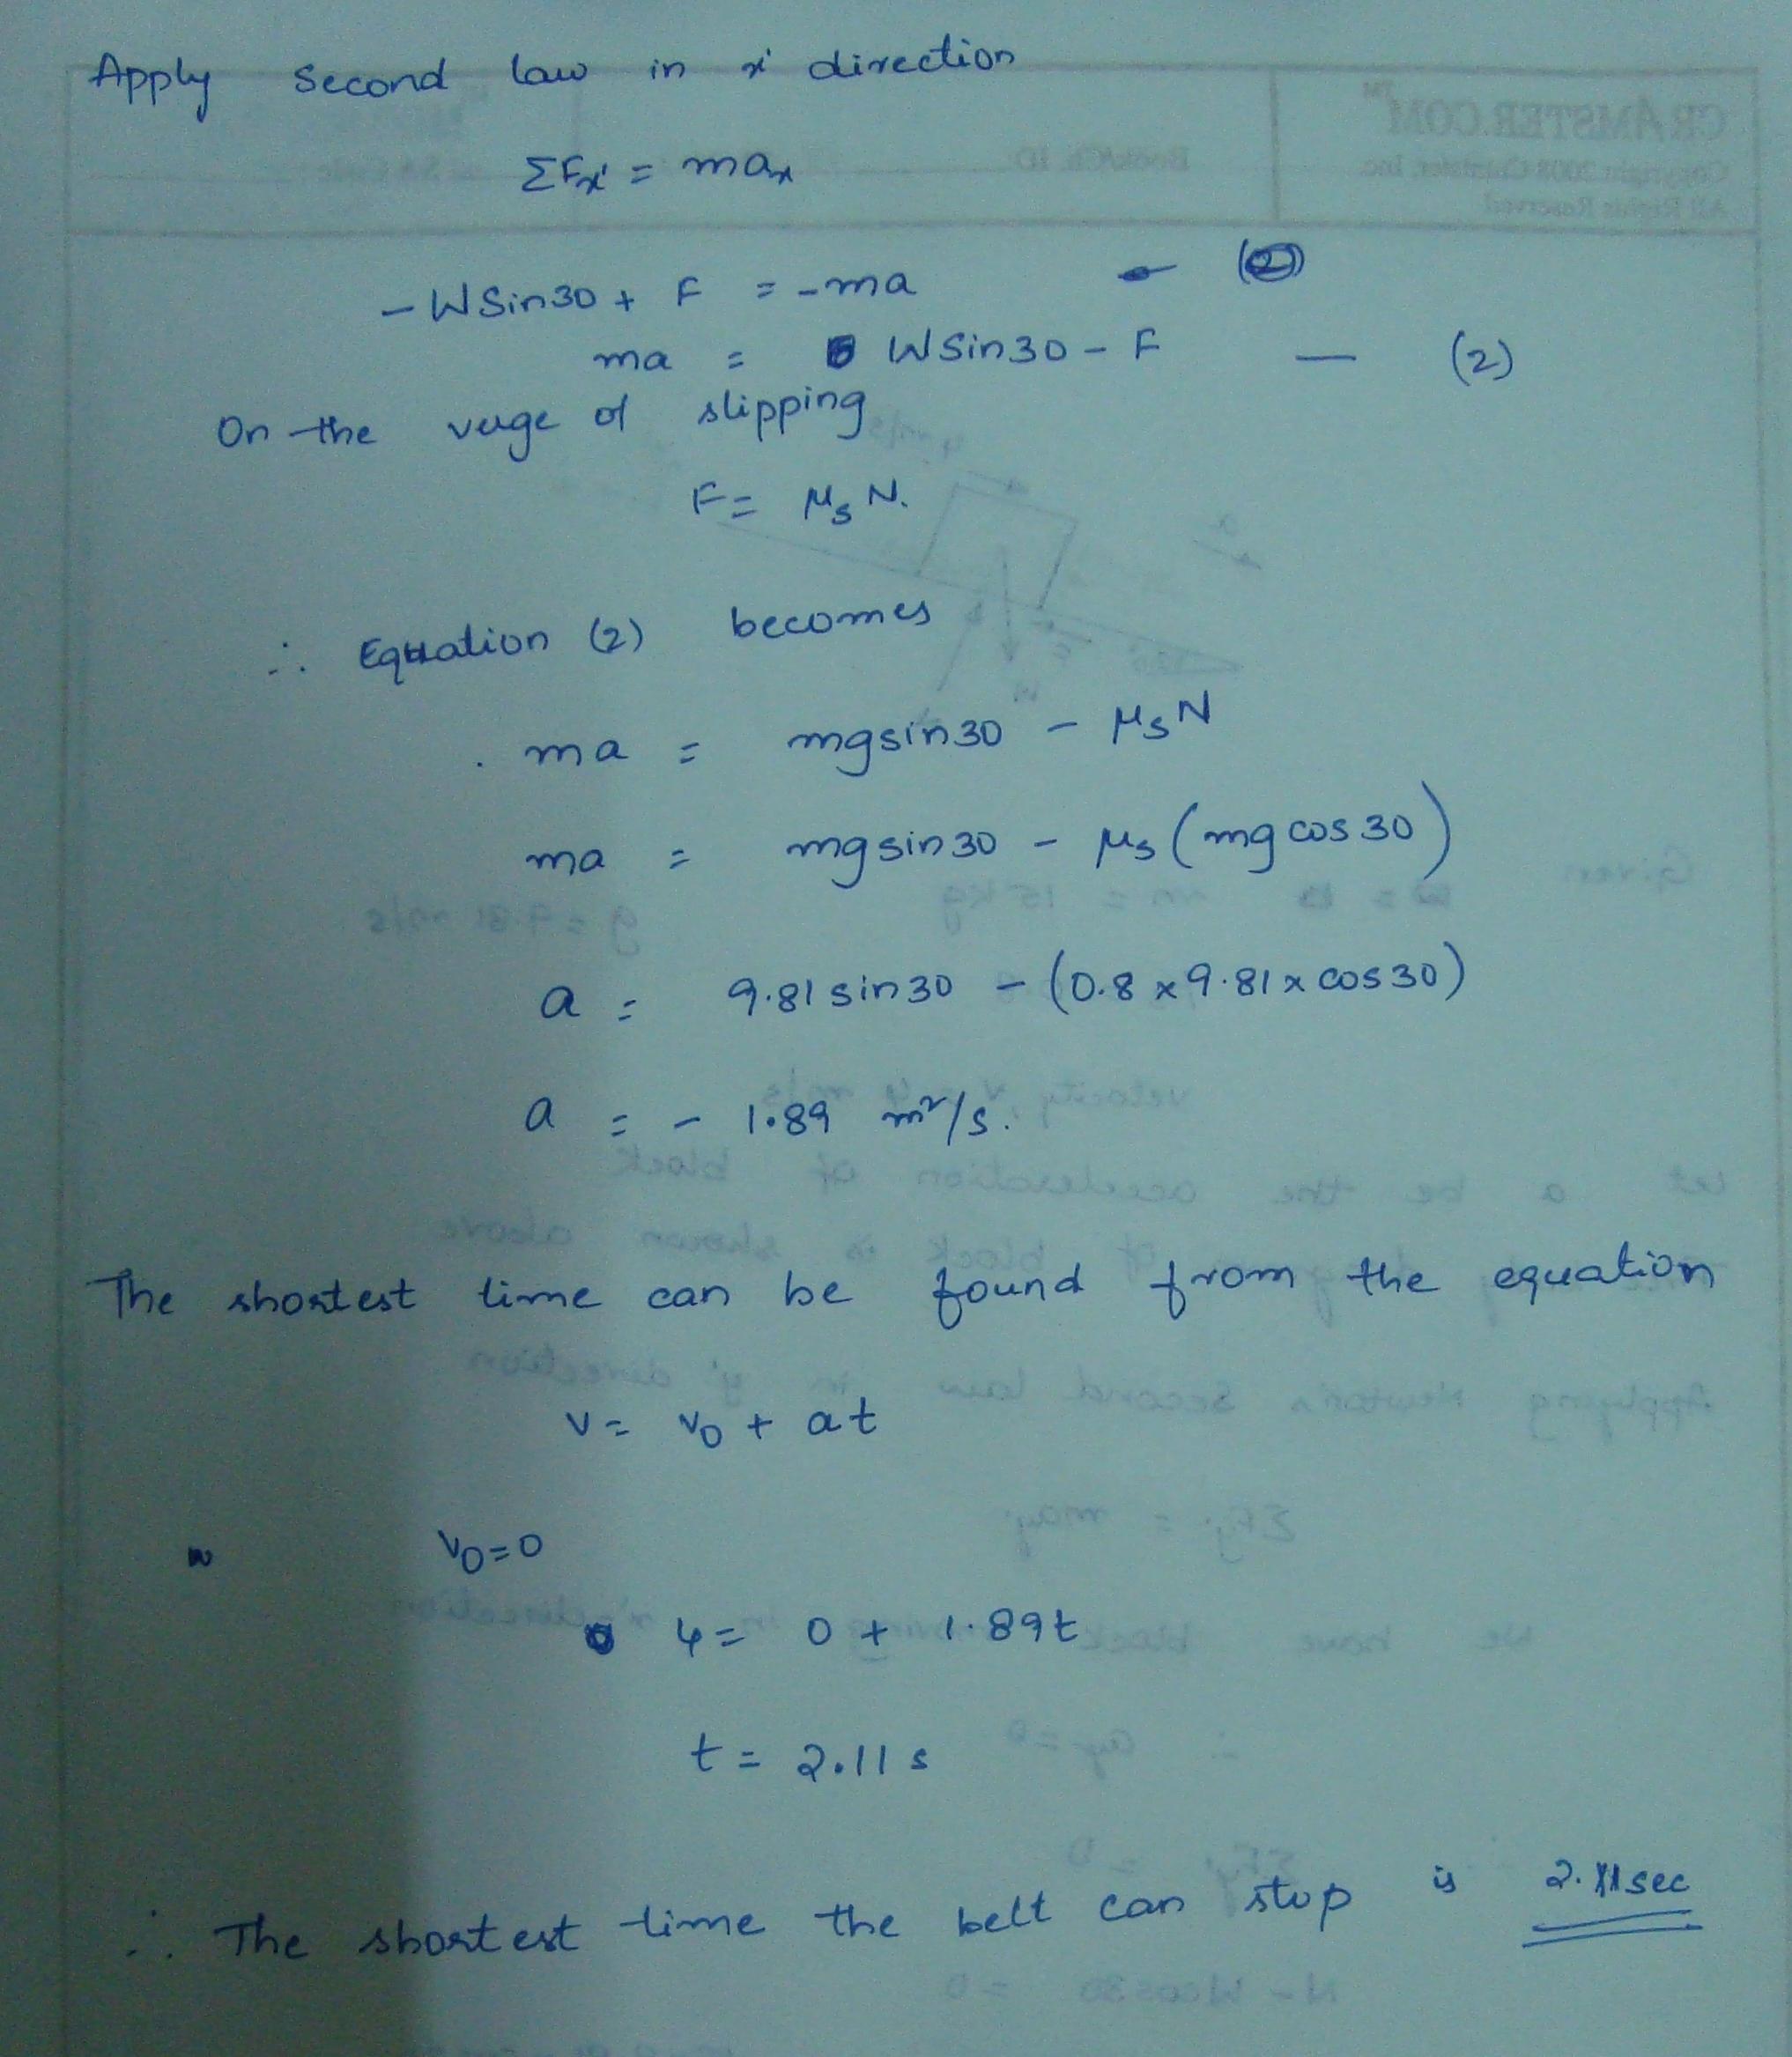 Apply second law in x' direction
ΣFx' = max
- W Sin30 + F = -ma - (2)
ma = W Sin30 - F — (2)
On the verge of slipping
F = μs N.
∴ Equation (2) becomes
ma = mgsin30 - μsN
ma = mgsin30 - μs(mg cos30)
a = 9.81 sin30 - (0.8 x 9.81 x cos30)
a = - 1.89 m²/s.
The shortest time can be found from the equation
v = v0 + at
v0 = 0
4 = 0 + 1.89t
t = 2.11 s
∴ The shortest time the belt can stop is 2.11sec